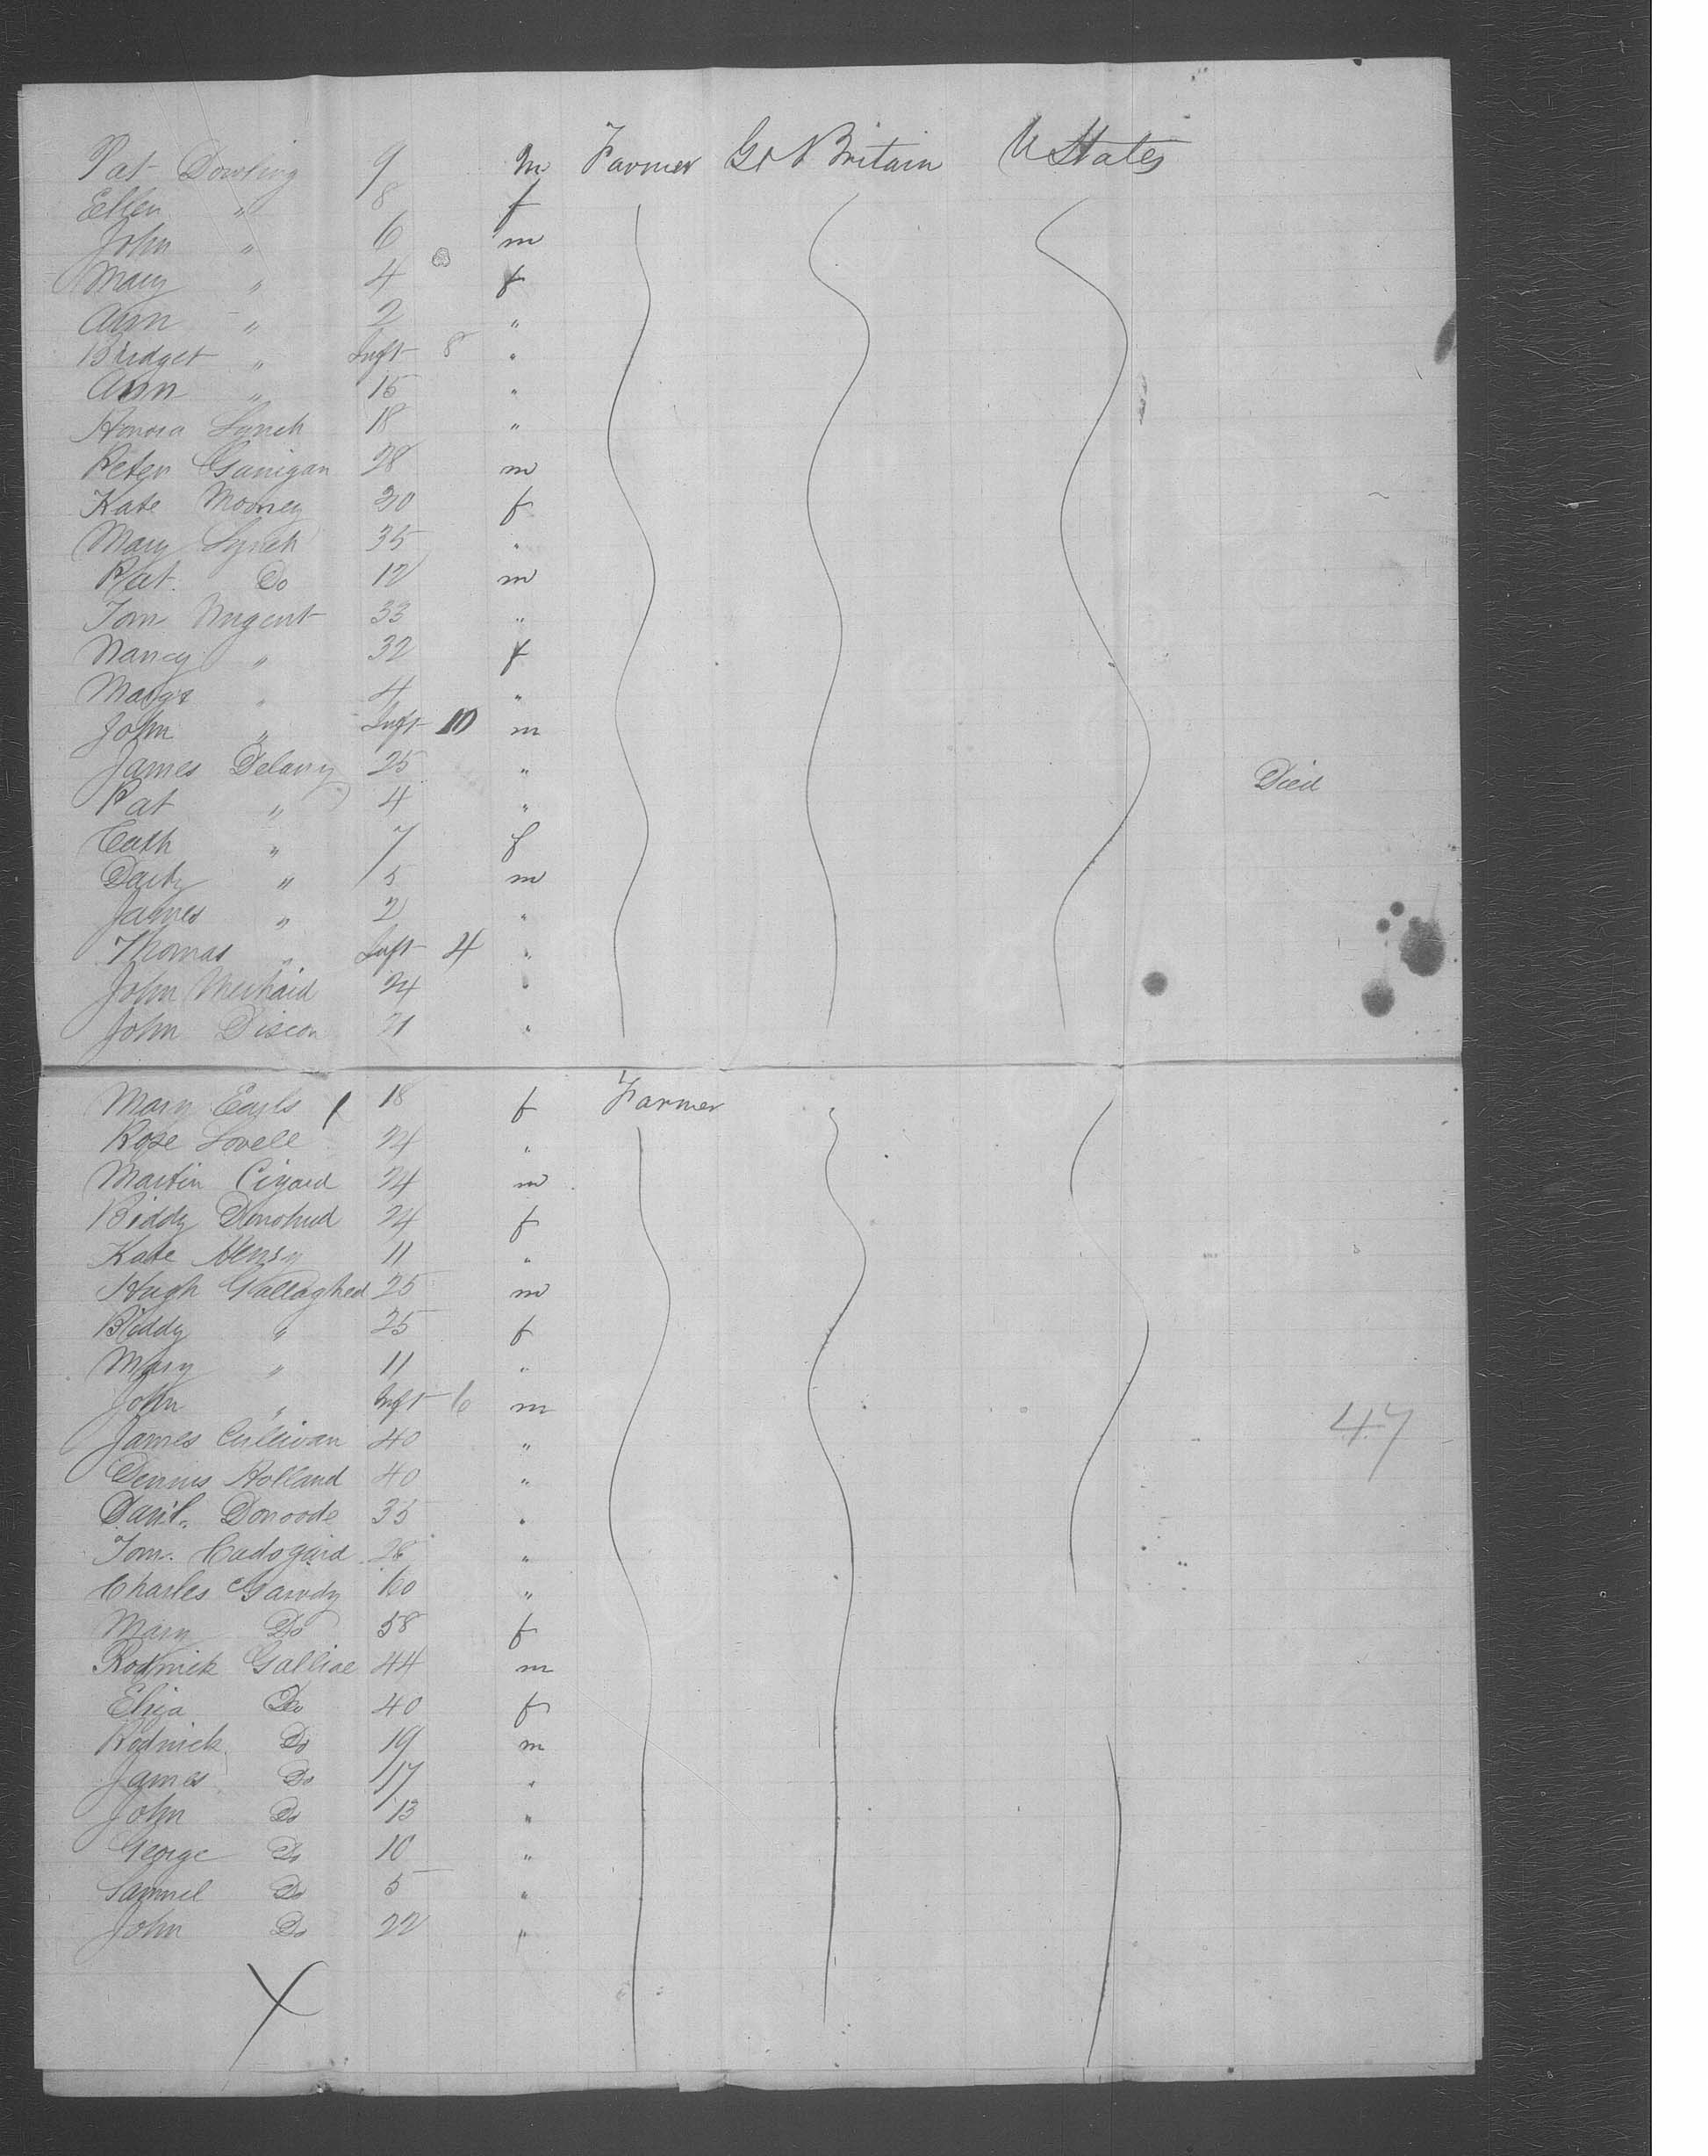 Pat Dowling 9 m Farmer Gt Britain U States
Ellen " 8 f
John " 6 m
Mary " 4 f
Ann " 2 "
Bridget " Inft 8 "
Ann " 15 "
Honora Lynch 18 "
Peter Ganigan 28 m
Kate Mooney 20 f
Mary Lynch 35 "
Pat. Do 12 m
Tom Nugent 33 "
Nancy " 32 f
Margt " 4 "
John " Inft 10 m
James Delany 25 " Died
Pat " 4 "
Cath " 7 f
" 5 m
James " 2 "
Thomas " Inft 4 "
John 24 "
John Discon 21 "
Mary Earls 18 f Farmer
Rose Lovell 24 "
Martin 24 m
Biddy Donohud 24 f
Kate Henry 11 "
Hugh Gallaghed 25 m
Biddy " 25 f
Mary " 11 "
John " Inft 6 m
James Cullivan 40 " 47
Dennis Holland 40 "
Danl. Donoode 35 "
Tom. 28 "
Charles 60 "
Mary Do 58 f
Rodnick Galliae 44 m
Eliza Do 40 f
Rodnick Do 19 m
James Do 17 "
John Do 13 "
George Do 10 "
Samuel Do 5 "
John Do 22 "
X